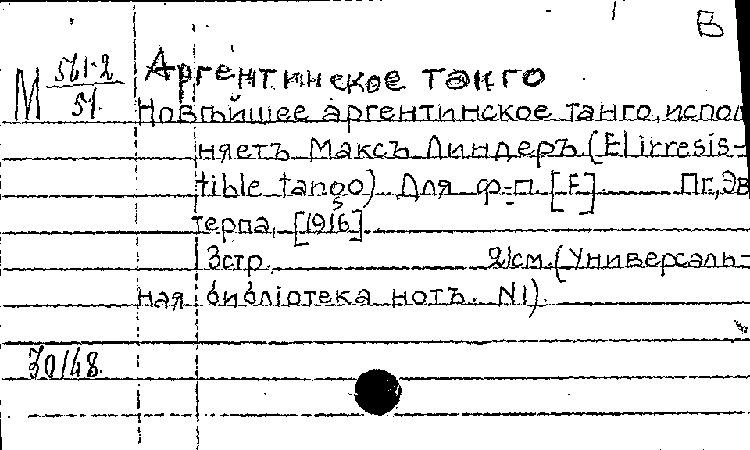 В
М 561-2/51 Аргентинское танго
Новѣйшее аргентинское танго, испол
няетъ Максъ Линдеръ (El irresis-
tible tango) Для ф-п. [F] Пг., Эв
терпа, [1916]
3 стр. 21 см. (Универсаль-
ная библіотека нотъ. N1).
30/48.